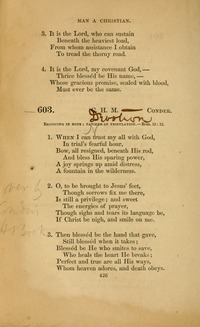 MAN A CHRISTIAN.
3. It is the Lord, who can sustain
Beneath the heaviest load,
From whom assistance I obtain
To tread the thorny road.
4. It is the Lord, my covenant God,—
Thrice blessed be his name,—
Whose gracious promise, sealed with blood,
Must ever be the same.
603. H. M. CONDER.
Devotion
REJOICING IN HOPE; PATIENT IN TRIBULATION.—Rom. 12: 12.
1. WHEN I can trust my all with God,
In trial's fearful hour,
Bow, all resigned, beneath His rod,
And bless His sparing power,
A joy springs up amid distress,
A fountain in the wilderness.
2. O, to be brought to Jesus' feet,
Though sorrows fix me there,
Is still a privilege; and sweet
The energies of prayer,
Though sighs and tears its language be,
If Christ be nigh, and smile on me.
3. Then blessèd be the hand that gave,
Still blessèd when it takes;
Blessèd be He who smites to save,
Who heals the heart He breaks;
Perfect and true are all His ways,
Whom heaven adores, and death obeys.
426